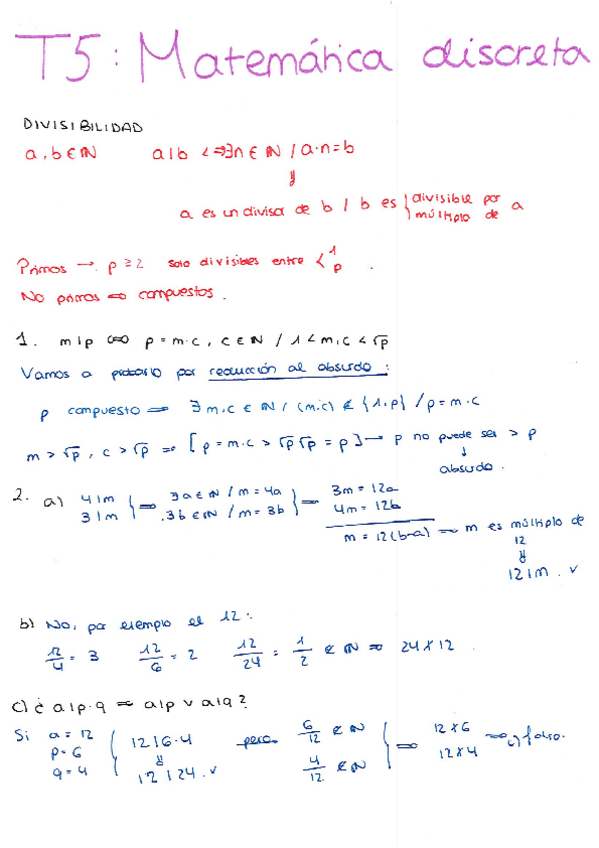 T5: Matemática discreta
DIVISIBILIDAD
a, b ∈ ℕ a|b <=> ∃n ∈ ℕ / a·n=b
⇓
a es un divisor de b / b es { divisible por / múltiplo de a
Primos → p ≥ 2 solo divisibles entre < 1 / p .
No primos => compuestos.
1. m|p <=> p = m·c, c ∈ ℕ / 1 < m,c < √p
Vamos a probarlo por reducción al absurdo:
p compuesto => ∃ m,c ∈ ℕ / (m,c) ∉ {1,p} / p = m·c
m > √p, c > √p => [p = m·c > √p √p = p] → p no puede ser > p
↓
absurdo.
2. a) 4|m } => ∃a ∈ ℕ / m = 4a } => 3m = 12a
3|m ∃b ∈ ℕ / m = 3b 4m = 12b
m = 12(b-a) => m es múltiplo de
12
⇓
12|m. ✓
b) No, por ejemplo el 12:
12/4 = 3 12/6 = 2 12/24 = 1/2 ∉ ℕ => 24∤12.
c) ¿ a|p·q => a|p ∨ a|q?
Si a = 12 { 12|6·4 pero 6/12 ∉ ℕ } => 12∤6 => c) falso.
p = 6 ⇓ 4/12 ∉ ℕ 12∤4
q = 4 12|24. ✓